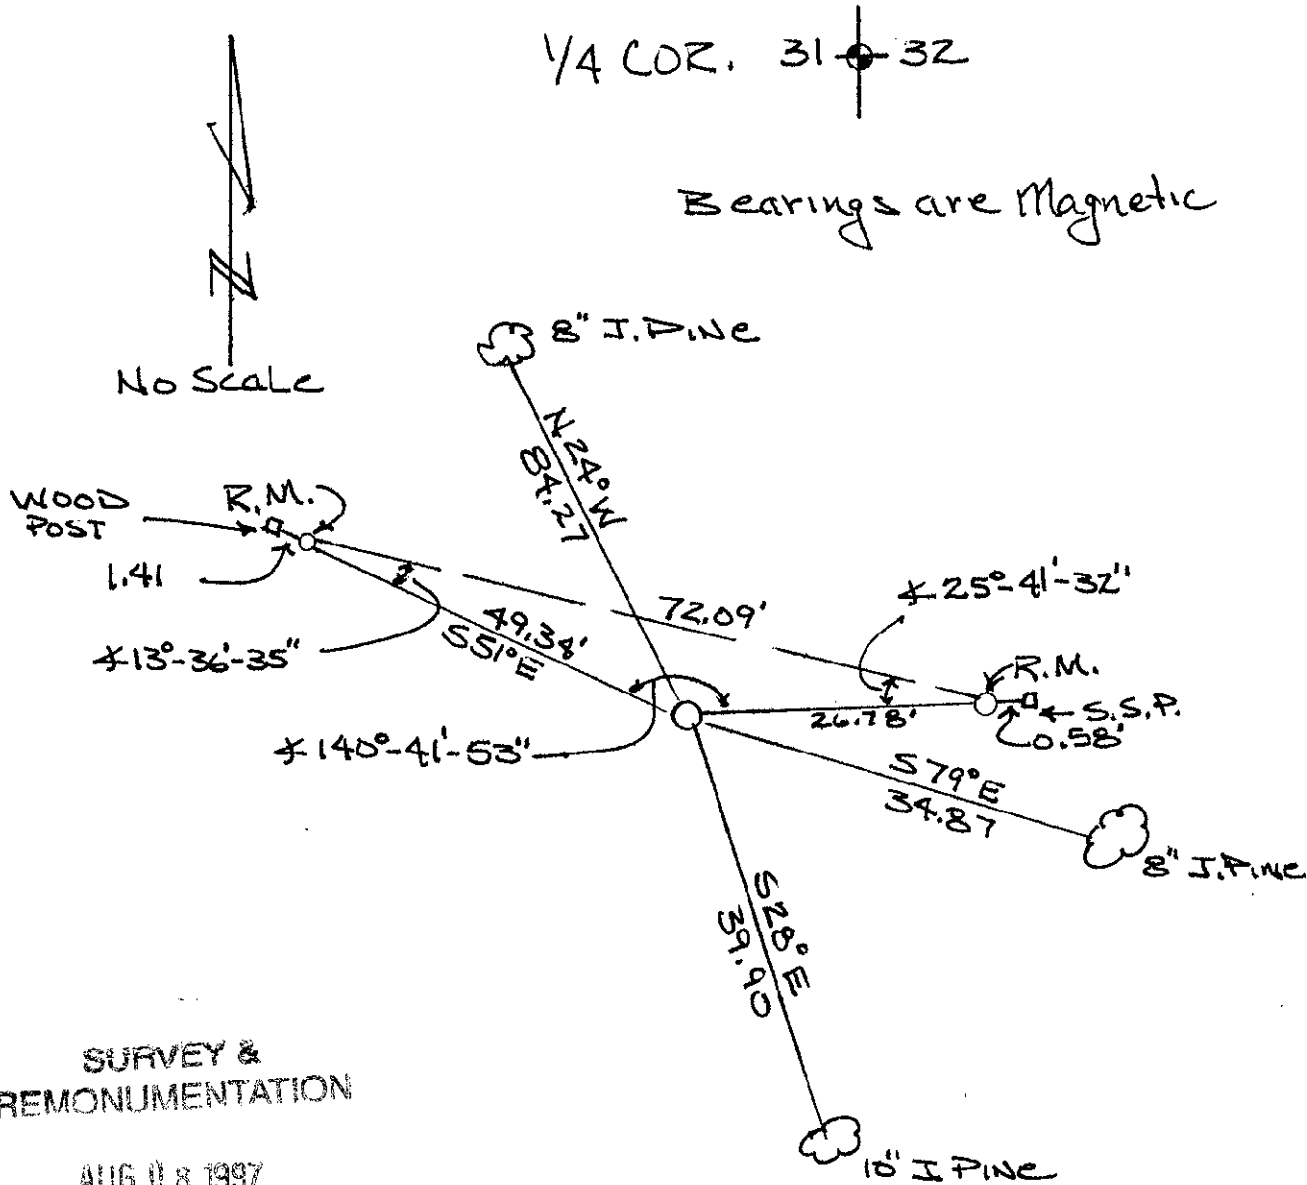 1/4 COR. 31 32
Bearings are Magnetic
N
No Scale
8" J. PINE
N 24° W
84.27
WOOD
POST
R.M.
1.41
∡ 13°-36'-35"
49.34'
S 51° E
72.09'
∡ 25°-41'-32"
R.M.
S.S.P.
0.58'
26.78'
∡ 140°-41'-53"
S 79° E
34.87
8" J. PINE
S 28° E
39.90
10" J PINE
SURVEY &
REMONUMENTATION
AUG 08 1997